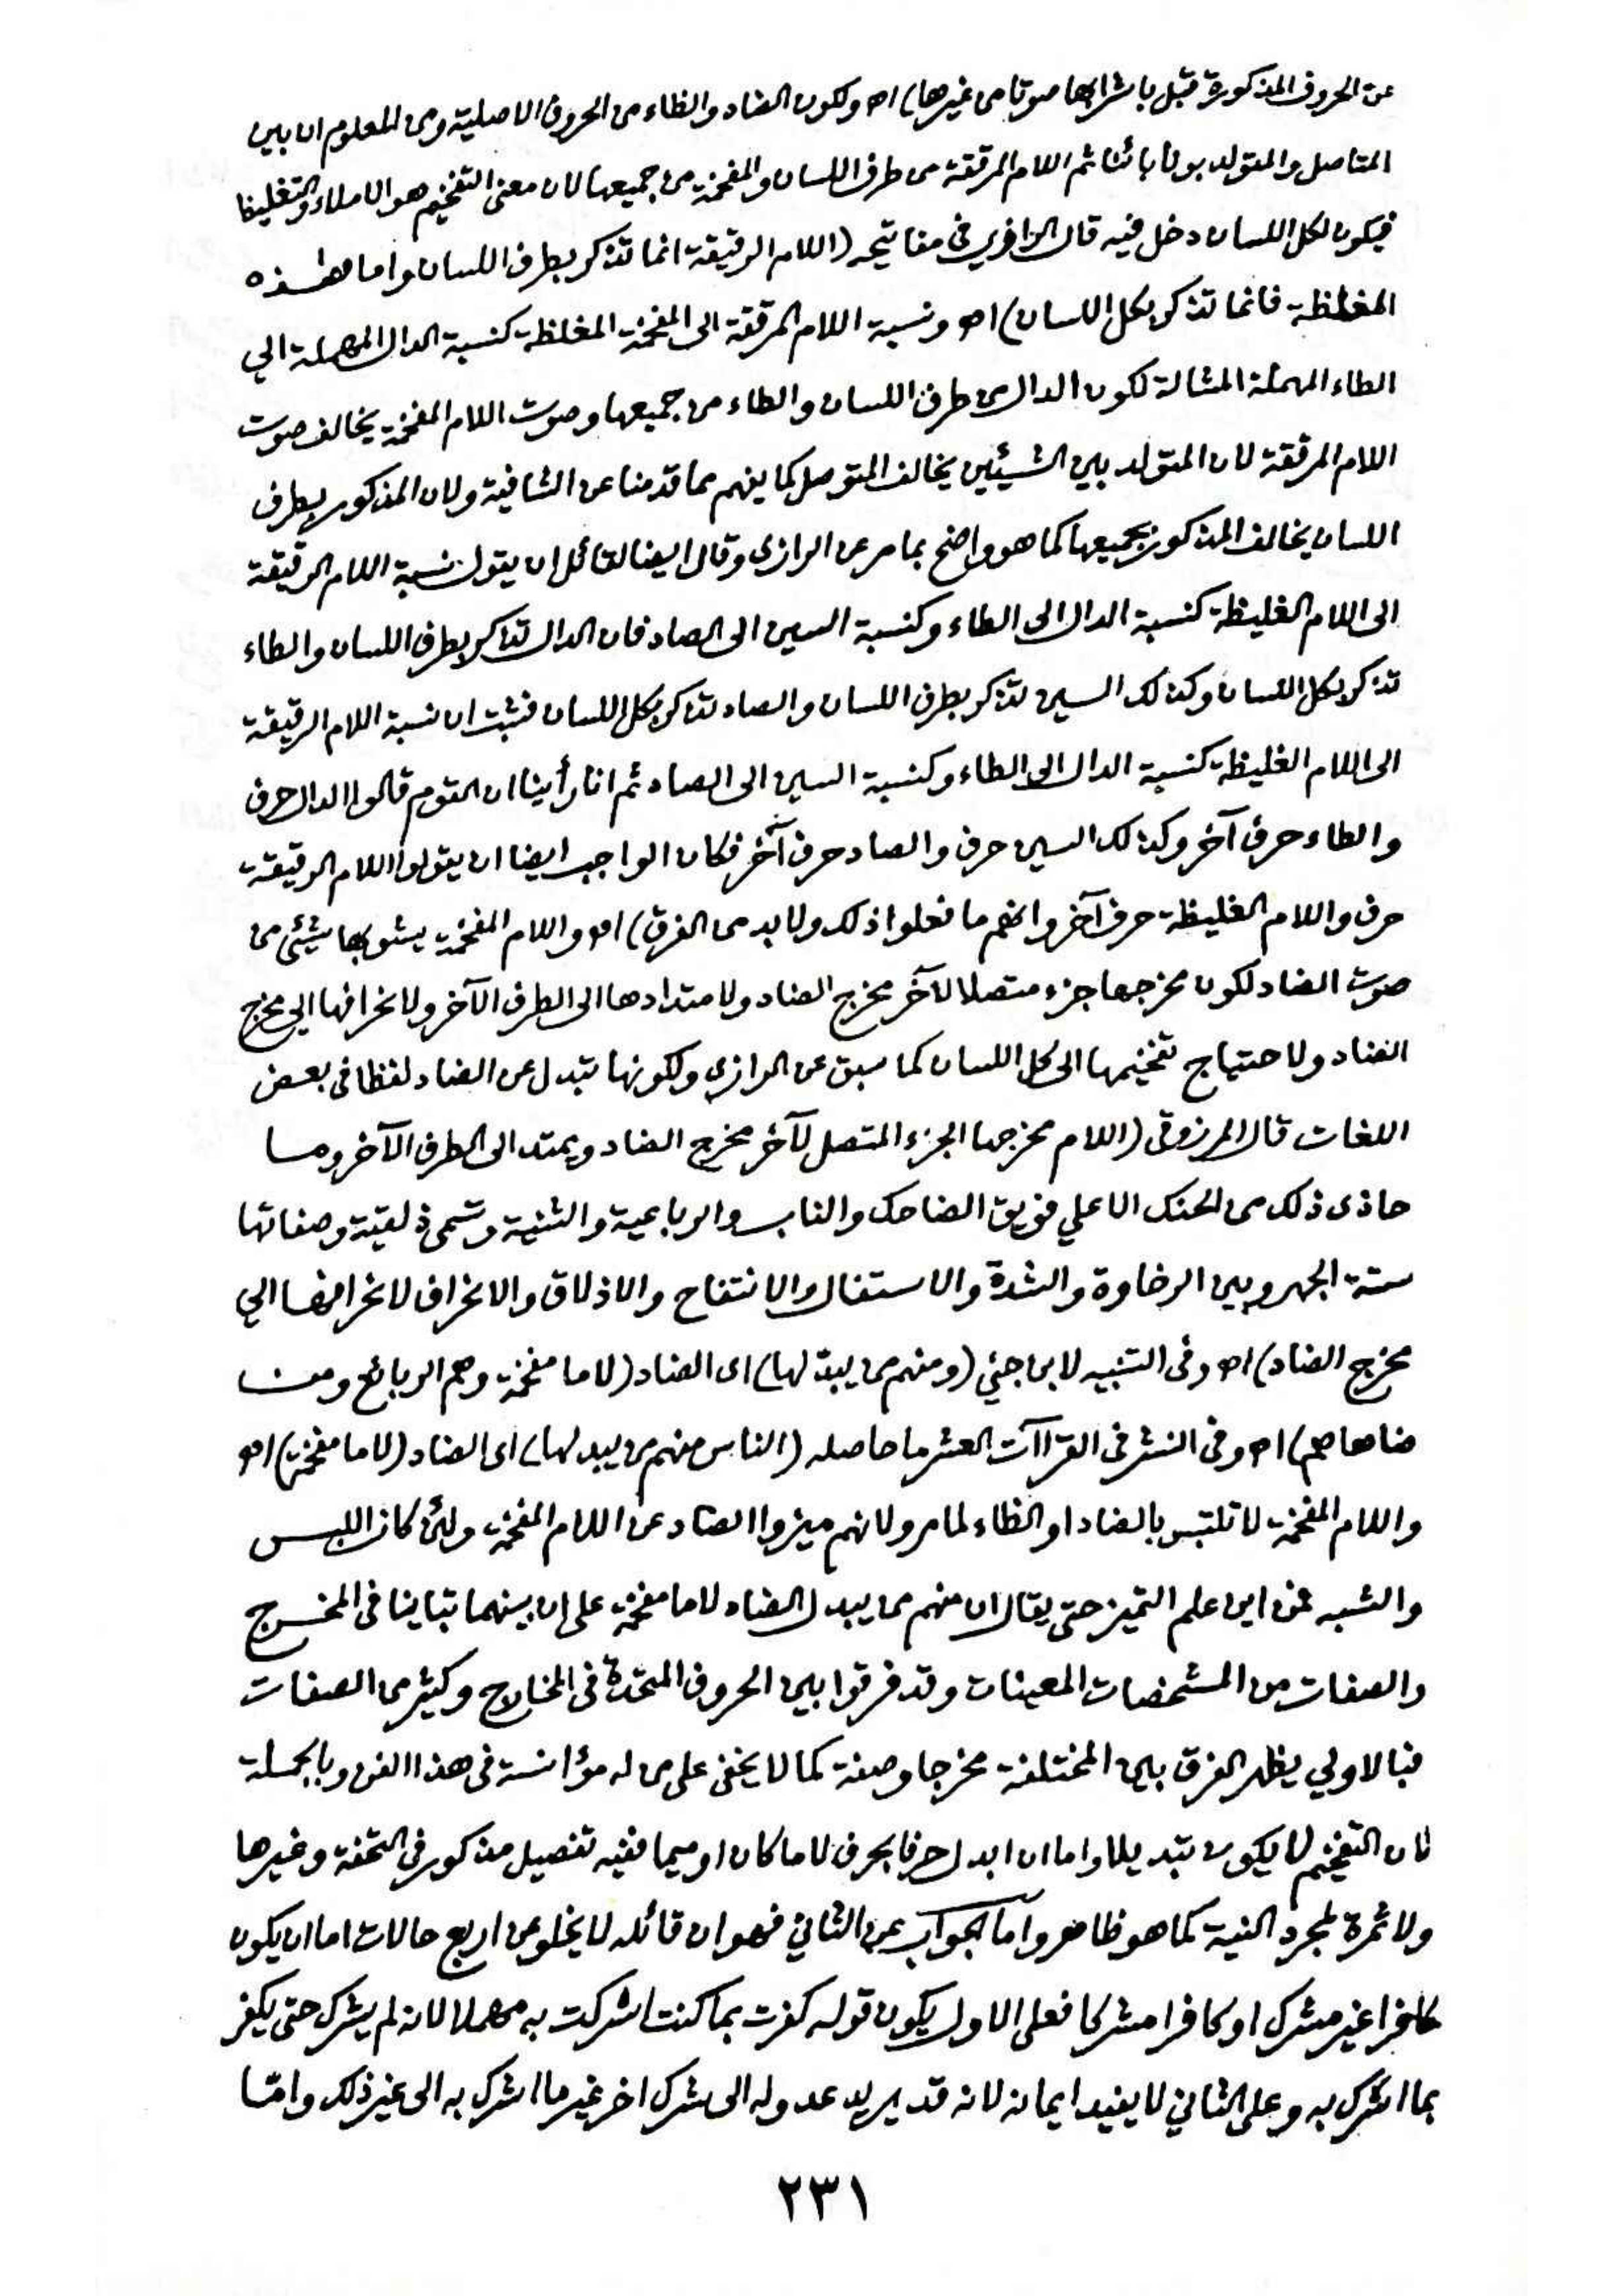 عن الحروف المذكورة قبل باشرابها صوتا من غيرها) اه ولكون الضاد والظاء من الحروف الاصلية ومن المعلوم ان بين
المتاصل والمتولد بونا بائنا ثم اللام المرققة من طرف اللسان والمفخمة من جميعها لان معنى التفخيم هو الاملاء والتغليظ
فيكون لكل اللسان دخل فيه قال الرازي في مفاتيحه (اللام الرقيقة انما تذكر بطرف اللسان واما هذه
المغلظة فانما تذكر بكل اللسان) اه ونسبة اللام المرققة الى المفخمة المغلظة كنسبة الدال المهملة الي
الطاء المهملة المشالة لكون الدال من طرف اللسان والطاء من جميعها وصوت اللام المفخمة يخالف صوت
اللام المرققة لان المتولد بين الشيئين يخالف المتوصل كما يفهم مما قدمنا عن الشافية ولان المذكور بطرف
اللسان يخالف المذكور بجميعها كما هو واضح بما مر عن الرازي وقال ايضا لقائل ان يقول نسبة اللام الرقيقة
الى اللام الغليظة كنسبة الدال الى الطاء وكنسبة السين الى الصاد فان الدال تذكر بطرف اللسان والطاء
تذكر بكل اللسان وكذلك السين تذكر بطرف اللسان والصاد تذكر بكل اللسان فثبت ان نسبة اللام الرقيقة
الى اللام الغليظة كنسبة الدال الى الطاء وكنسبة السين الى الصاد ثم انا رأينا ان القوم قالوا الدال حرف
والطاء حرف آخر وكذلك السين حرف والصاد حرف آخر فكان الواجب ايضا ان يقولوا اللام الرقيقة
حرف واللام الغليظة حرف آخر وانهم ما فعلوا ذلك ولا بد من الفرق) اه واللام المفخمة يشوبها شيئ من
صوت الضاد لكون مخرجها جزء متصلا لآخر مخرج الضاد ولامتدادها الى الطرف الآخر ولانحرافها الي مخرج
الضاد ولاحتياج تفخيمها الى كل اللسان كما سبق عن الرازي ولكونها تبدل عن الضاد لفظا في بعض
اللغات قال المرزوقي (اللام مخرجها الجزء المتصل لآخر مخرج الضاد ويمتد الى الطرف الآخر وما
حاذى ذلك من الحنك الاعلي فويق الضاحك والناب والرباعية والثنية وتسمى ذلقية وصفاتها
ستة الجهر وبين الرخاوة والشدة والاستفال والانفتاح والاذلاق والانحراف لانحرافها الي
مخرج الضاد) اه وفي التنبيه لابن جني (ومنهم من يبدلها) اى الضاد (لاما مفخمة وهم الربائع ومن
ضاهاهم) اه وفي النشر في القراآت العشر ما حاصله (الناس منهم من يبدلها) اى الضاد (لاما مفخمة) اه
واللام المفخمة لا تلتبس بالضاد او الظاء لما مر ولانهم ميزوا الضاد عن اللام المفخمة ولئن كان اللبس
والشبه فمن اين علم التميز حتى يقال ان منهم من يبدل الضاد لاما مفخمة على ان بينهما تباينا في المخرج
والصفات من المشخصات المعينات وقد فرقوا بين الحروف المتحدة في المخارج وكثير من الصفات
فبالاولي يظهر الفرق بين المختلفة مخرجا وصفة كما لا يخفى على من له مؤانسة في هذا الفن وبالجملة
فان التفخيم لا يكون تبديلا واما ان ابدل حرفا بحرف لاما كان او ميما ففيه تفصيل مذكور في التحفة وغيرها
ولا ثمرة لمجرد النية كما هو ظاهر وأما الجواب عن الثاني فهو ان قائله لا يخلو عن اربع حالات اما ان يكون
كافرا غير مشرك او كافرا مشركا فعلى الاول يكون قوله كفرت بما كنت اشركت به مهملا لانه لم يشرك حتى يكفر
بما اشرك به وعلى الثاني لا يفيد ايمانه لانه قد يريد عدوله الى شرك اخر غير ما اشرك به الى غير ذلك وامّا
٢٣١